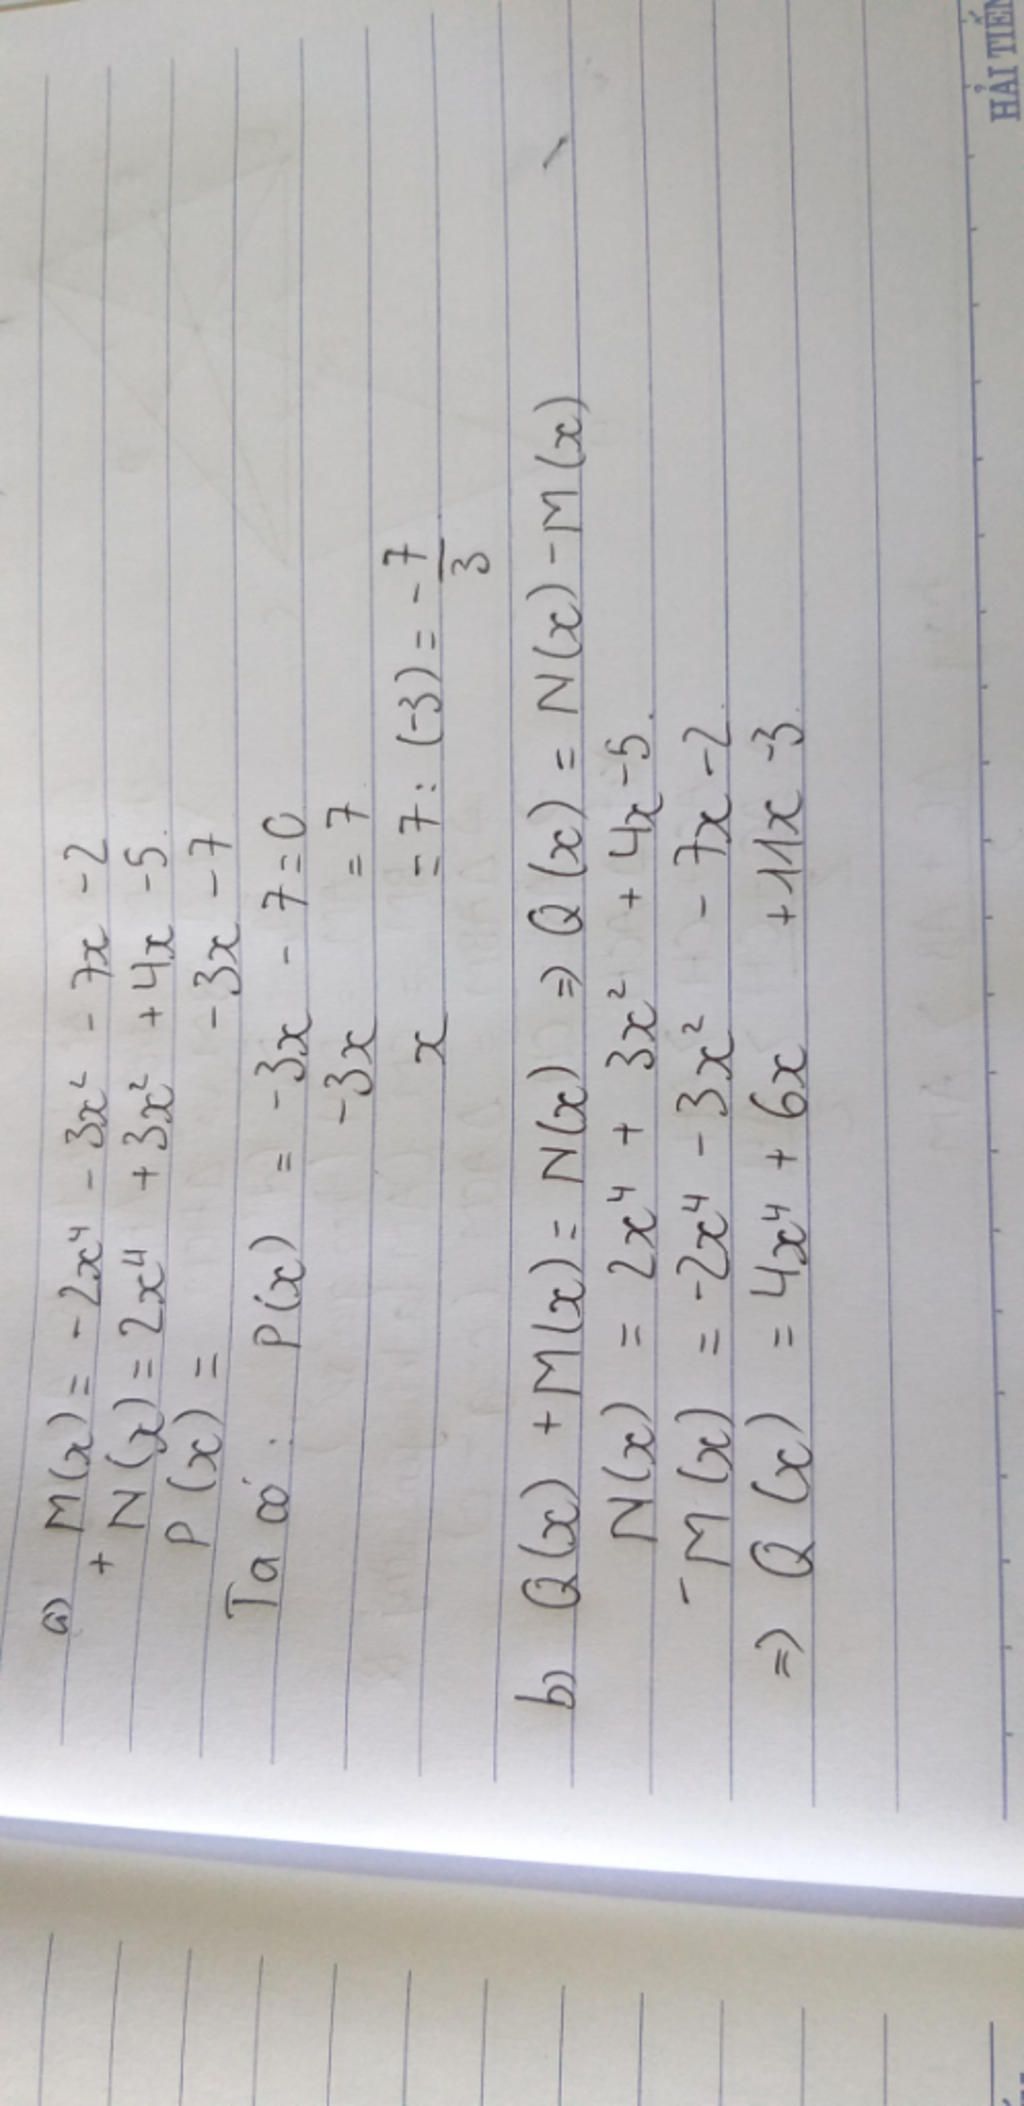 a) M(x) = -2x⁴ - 3x² - 7x - 2
+ N(x) = 2x⁴ + 3x² + 4x - 5.
P(x) = - 3x - 7
Ta có: P(x) = -3x - 7 = 0
-3x = 7
x = 7 : (-3) = - 7/3
b) Q(x) + M(x) = N(x) => Q(x) = N(x) - M(x)
N(x) = 2x⁴ + 3x² + 4x - 5.
- M(x) = -2x⁴ - 3x² - 7x - 2.
=> Q(x) = 4x⁴ + 6x + 11x - 3.
HẢI TIẾN